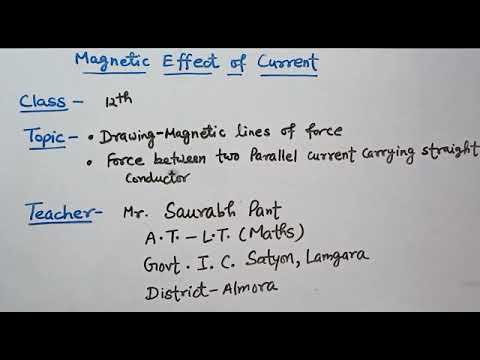 Magnetic Effect of Current
Class - 12th
Topic - • Drawing-Magnetic lines of force
• Force between two Parallel current carrying straight
conductor
Teacher- Mr. Saurabh Pant
A.T. - L.T. (Maths)
Govt. I. C. Satyon, Lamgara
District-Almora